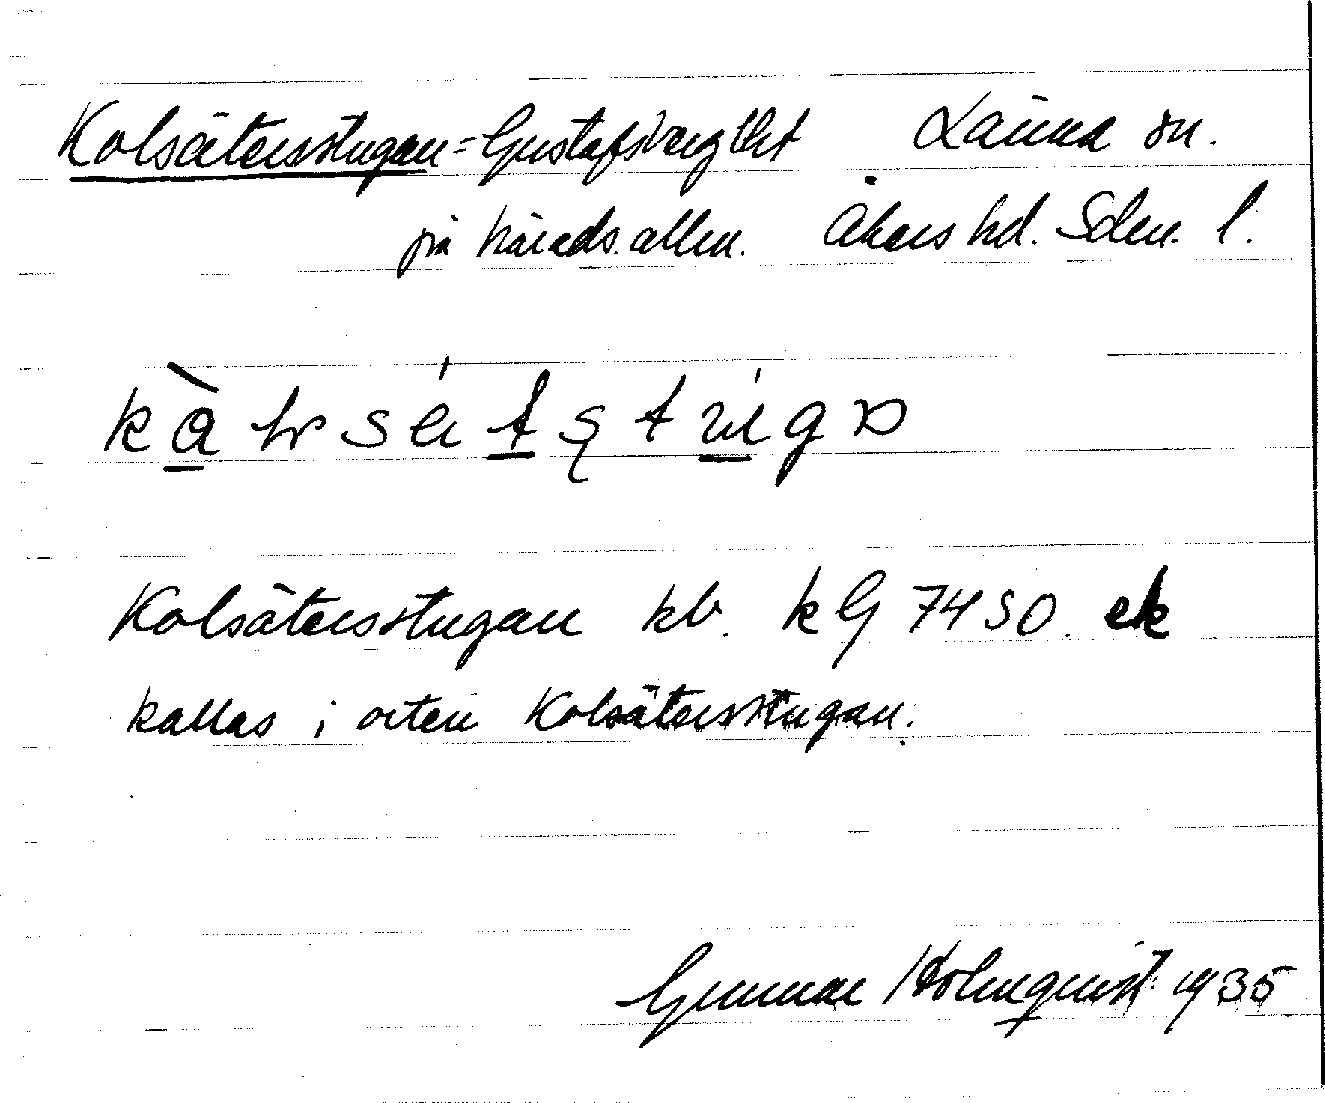 Kolsätersstugan = Gustafsberg Länna sn.
på häradsallm. Åkers hd. Sdm. l.
Kolsätersstugan kb. kG 7450 ek
kallas i orten Kolsätersstugan.
Gunnar Holmquist 1935